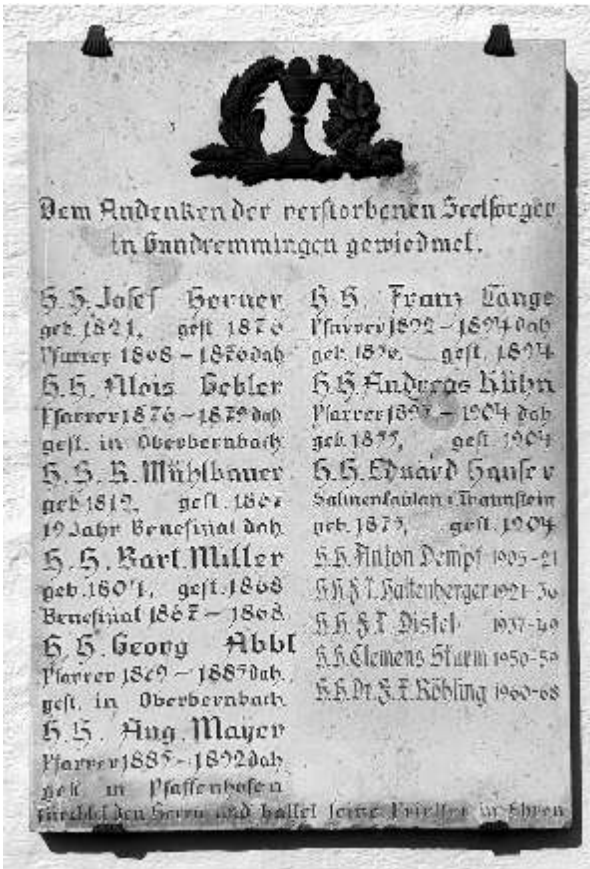 Dem Andenken der verstorbenen Seelsorger
in Gundremmingen gewiedmet.
H. H. Josef
geb. 1821, gest. 1876
Pfarrer 1868 – 1876 dah
H. H. Alois Gebler
Pfarrer 1876 – 1879 dah
gest. in Oberbernbach
H. H. R. Mühlbauer
geb. 1812, gest. 1867
19 Jahr Benefiziat dah
H. H. Bart. Miller
geb. 1804, gest. 1868
Benefiziat 1867 – 1868
H. H. Georg Abbt
Pfarrer 1869 – 1885 dah
gest. in Oberbernbach
H. H. Aug. Mayer
Pfarrer 1885 – 1892 dah
gest. in Pfaffenhofen
H. H. Franz Lange
Pfarrer 1892 – 1894 dah
geb. gest. 1894
H. H. Andreas Kühn
Pfarrer – 1904 dah
geb. gest. 1904
H. H. Eduard Hauser
Salinenkaplan i Traunstein
geb. 1875, gest. 1904
H. H. Anton Dempf 1905-21
H. H. F. X. Hattenberger 1921-36
H. H. F. X. Distel 1937-49
H. H. Clemens Sturm 1950-59
H. H. Dr. F. X. Röhling 1960-68
Fürchtet den Herrn und haltet seine Priester in Ehren